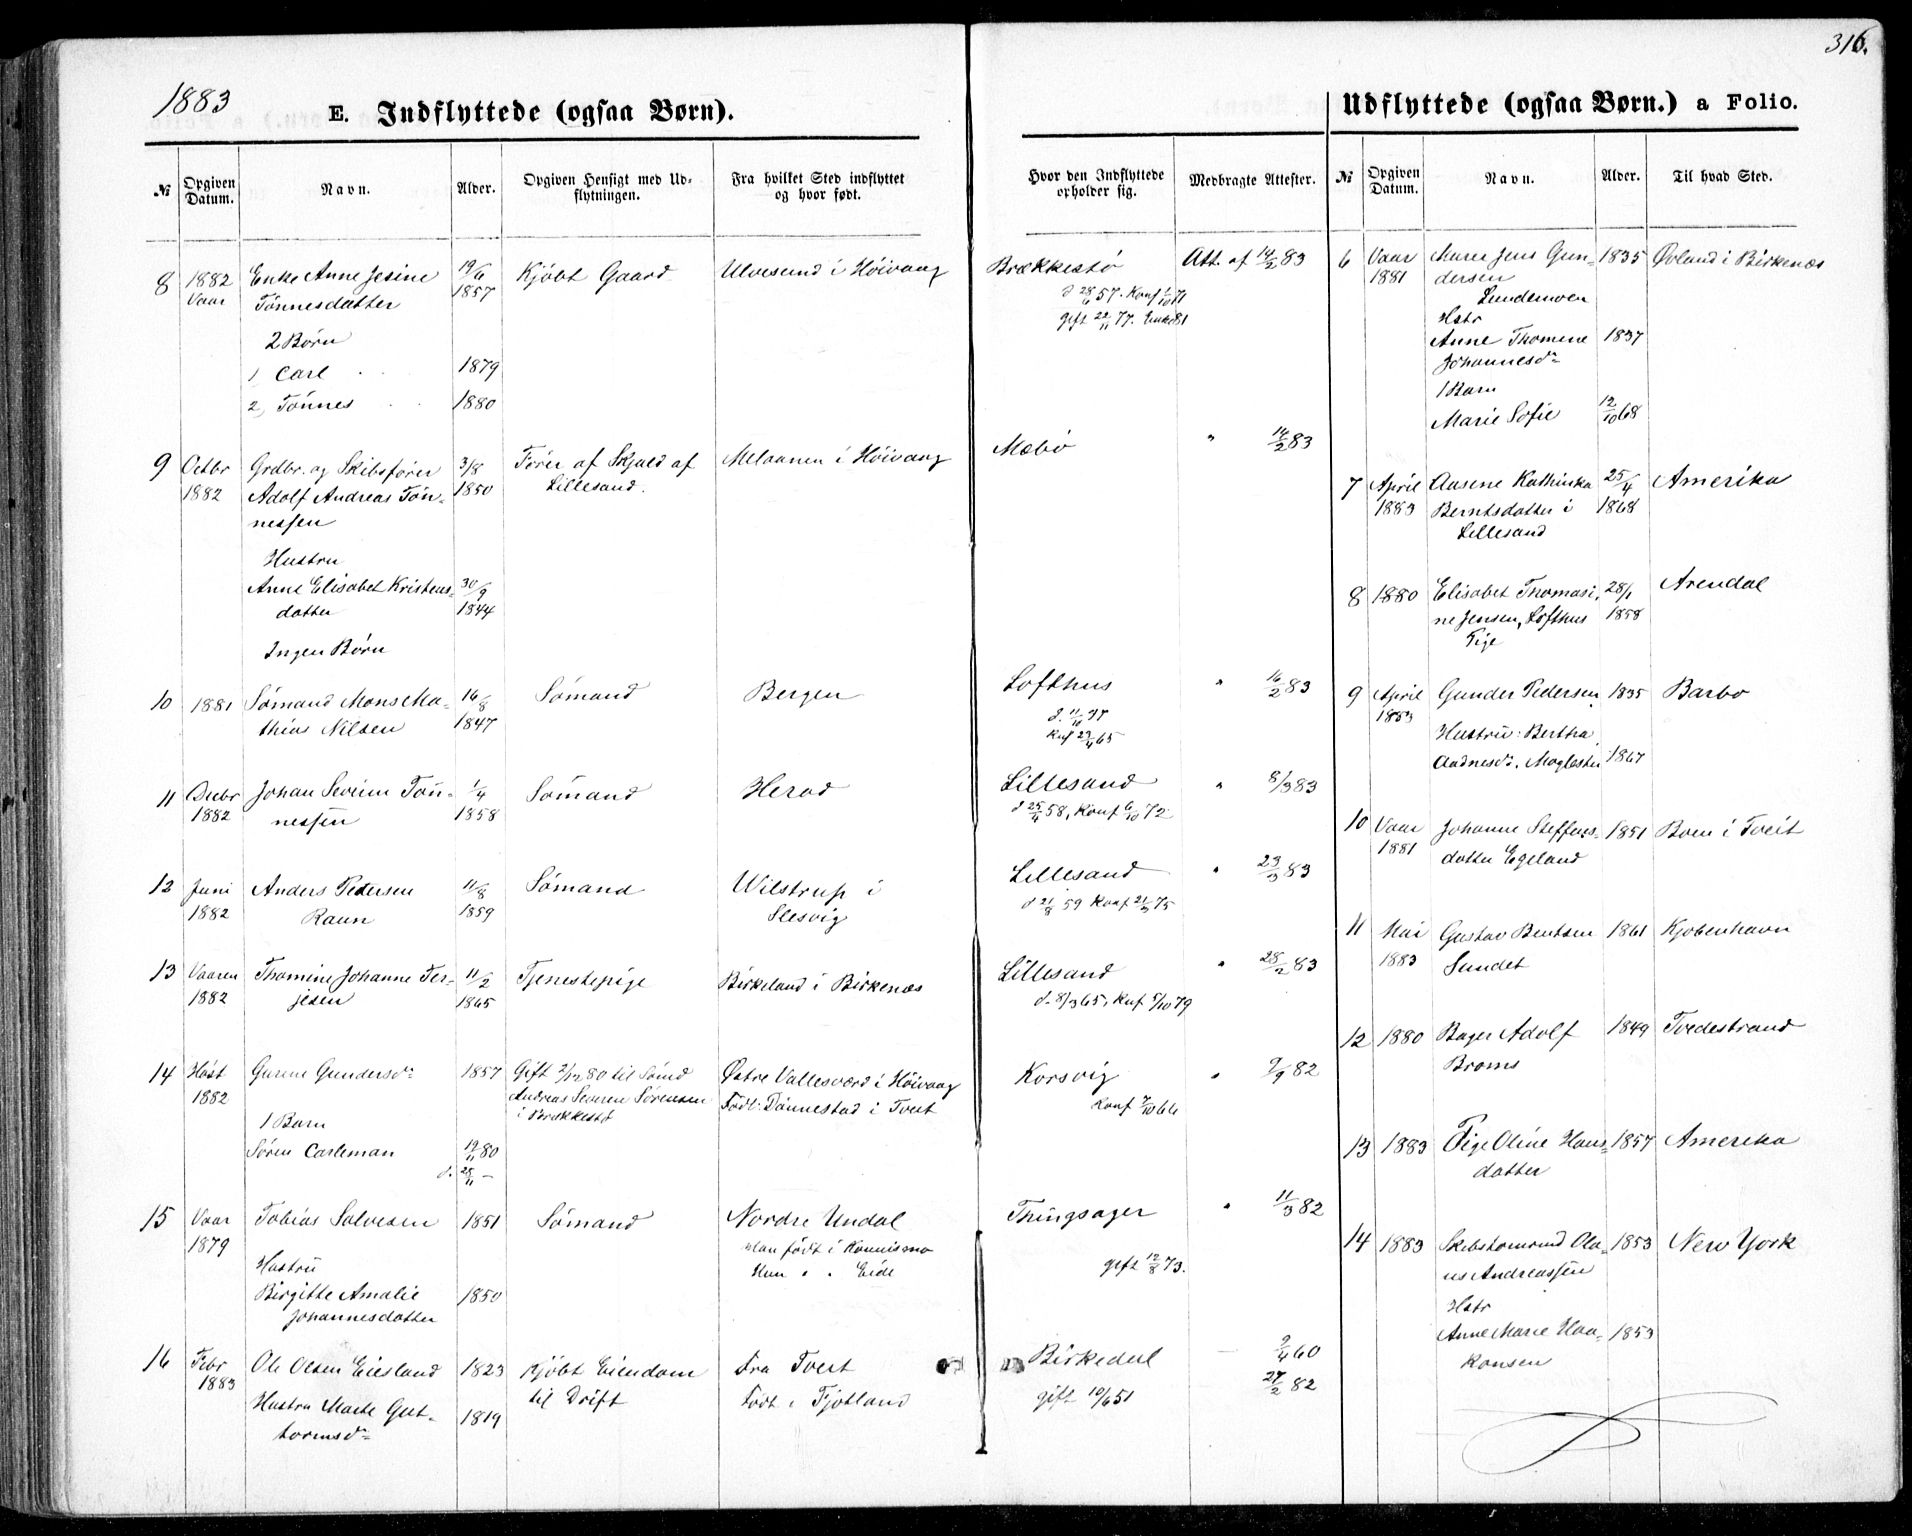 316.
1883
E. Indflyttede (ogsaa Børn).
№
Opgiven Datum.
Navn.
Alder.
Opgiven Hensigt med Udflytningen.
Fra hvilket Sted indflyttet og hvor født.
Hvor den Indflyttede opholder sig.
Medbragte Attester.
8 1882 Enke Anne Jesine 19/6 Kjøbt Gaard Ulvesund i Høivaag Brækkestø Att. af 14/2 83
Vaar Tønnesdatter 1857 d 28/6 57. Konf 1/10 71
gift 22/11 77. Enke 81
2 Børn
1, Carl 1879
2, Tønnes 1880
9 Octbr Grdbr. og Skibsfører 3/8 Fører af Skjold af Melaanen i Høivaag Mæbø " 14/2 83
1882 Adolf Andreas Tøn- 1850 Lillesand.
nessen
Hustru
Anne Elisabet Kristens- 30/9
datter 1844
Ingen Børn
10 1881 Sømand Mons Ma- 16/8 Sømand Bergen Lofthus " 16/2 83
thias Nilsen 1847 d. 11/10 47
Knf 23/4 65
11 Decbr Johan Severin Tøn- 1/4 Sømand Herad Lillesand " 8/3 83
1882 nessen 1858 d 25/4 58, Konf 6/10 72
12 Juni Anders Pedersen 11/8 Sømand Wilstrup i Lillesand " 23/3 83
1882 Raun 1859 Slesvig d 21/8 59 Konf 21/3 75
13 Vaaren Thomine Johanne Ter- 11/2 Tjenestepige Birkeland i Birkenæs Lillesand " 28/2 83
1882 jesen 1865 d. 8/3 65, Knf 5/10 79
14 Høst Gurine Gundersdr 1857 Gift 2/12 80 til Sømd Østre Vallesværd i Høivaag Korsvig " 9/9 82
1882 Andreas Severin Sørensen Født: Dønnestad i Tveit Konf 7/10 66
1 Barn i Brækkestø
Søren Carleman 19/11 80
d. 28/11 —
15 Vaar Tobias Salvesen 1851 Sømand Nordre Undal Thingsager " 11/3 82
1879 Han født i Konnismo
Hustru Hun " " Eide gift 12/8 73.
Birgitte Amalie 1850
Johannesdatter
16 Febr Ole Olsen Eiesland 1823 Kjøbt Eiendom Fra Tveit Birkedal — 9/4 60
1883 til Drift Født i Fjotland gift 10/6 51 27/2 82
Hustru Marte Gut- 1819
tormsdr
Udflyttede (ogsaa Børn.) a Folio.
№
Opgiven Datum.
Navn.
Alder.
Til hvad Sted.
6 Vaar Murer Jens Gun- 1835 Øvland i Birkenæs
1881 dersen
Lundemoen
Hstr
Anne Thomine 1837
Johannesdr
1 Barn
Marie Sofie 12/10 68
7 April Aasene Kathinka 25/4 Amerika
1883 Berntsdatter i 1868
Lillesand
8 1880 Elisabet Thomasi- 28/1 Arendal
ne Jensen, Lofthus 1858
Pige
9 April Gunder Pedersen 1835 Barbo
1883
Hustru: Bertha
Aadnesdr. Moglestu 1867
10 Vaar Johanne Steffens- 1851 Boen i Tveit
1881 datter Egeland
11 Mai Gustav Bentsen 1861 Kjøbenhavn
1883 Sundet
12 1880 Bager Adolf 1849 Tvedestrand
Broms
13 1883 Pige Oline Hans- 1857 Amerika
datter
14 1883 Skibstømmd Ola- 1853 New York
us Andreassen
Hstr
Anne Marie Haa- 1853
konsen